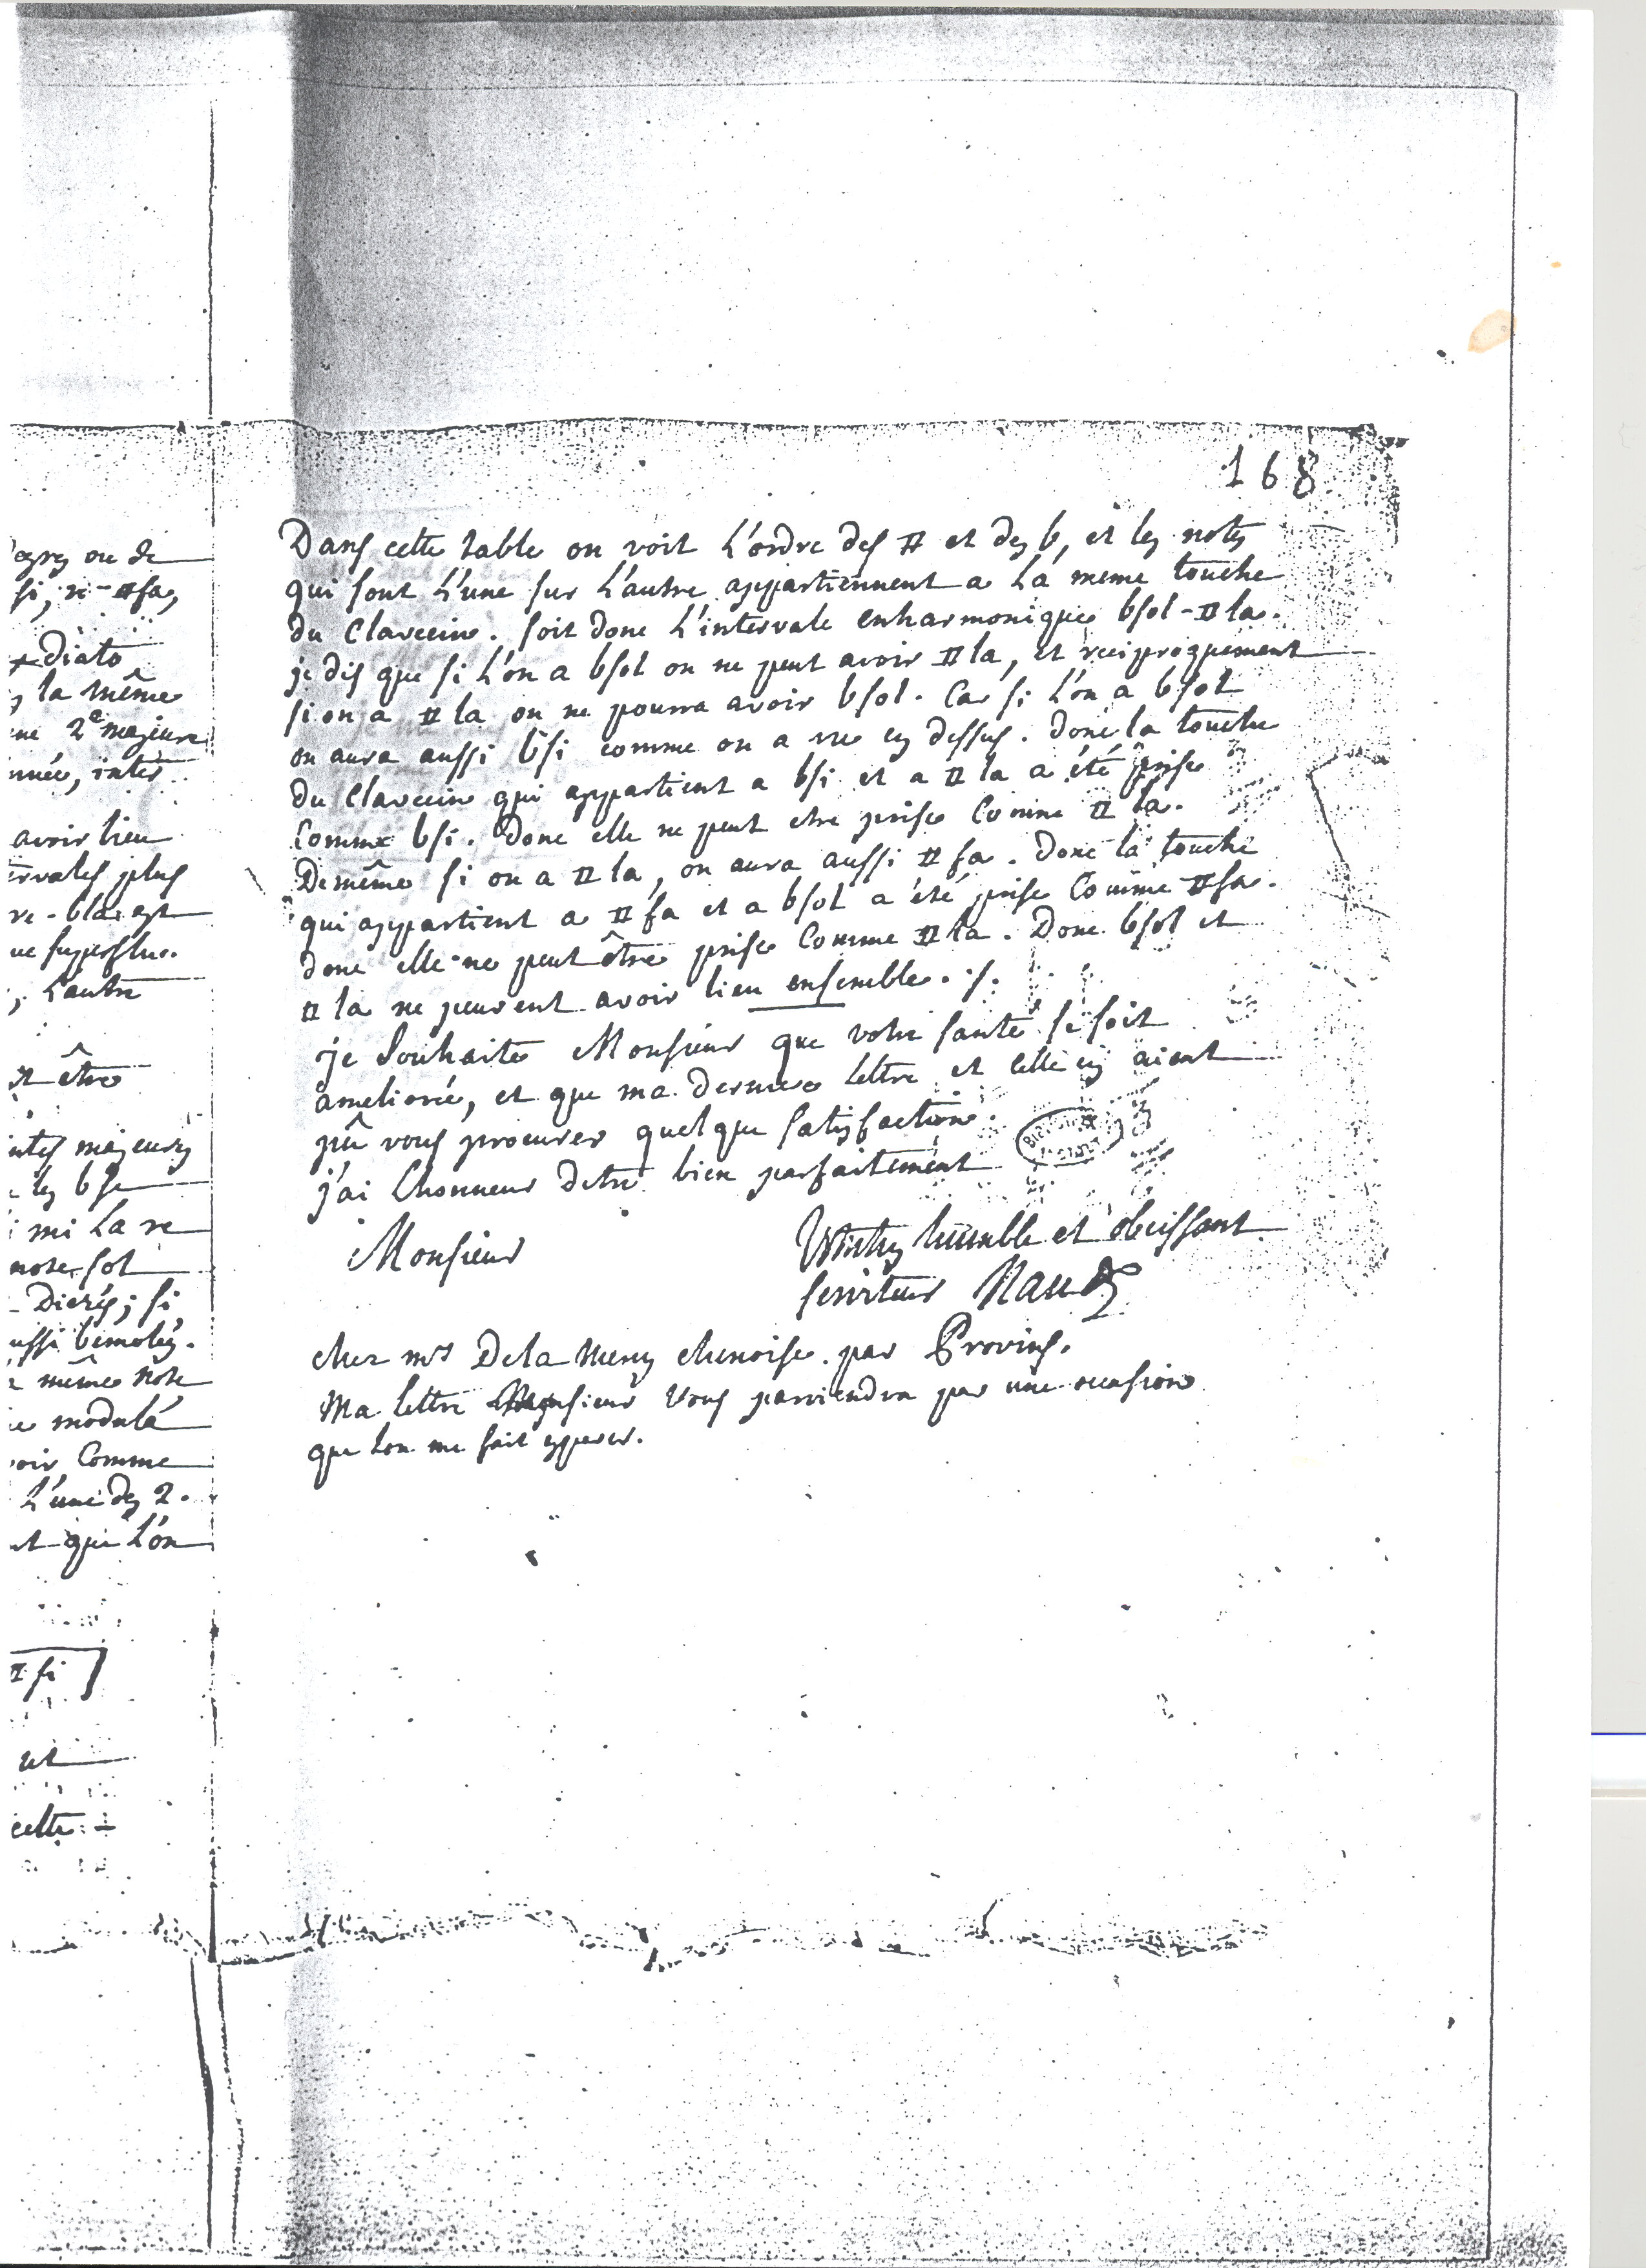 168
Dans cette table on voit L'ordre des # et des b, et les notes
qui sont L'une sur L'autre appartiennent a La meme touche
du Clavecin. soit donc L'intervale enharmonique bsol-#la.
je dis que si L'on a bsol on ne peut avoir #la, et reciproquement
si on a #la on ne pourra avoir bsol. Car si L'on a bsol
on aura aussi bsi comme on a vu cy dessus. Donc la touche
du Clavecin qui appartient a bsi et a #la a été prise
Comme bsi. Donc elle ne peut etre prise Comme #la.
De même si on a #la, on aura aussi #fa. Donc la touche
qui appartient a #fa et a bsol a été prise Comme #fa.
donc elle ne peut être prise Comme #la. Donc bsol et
#la ne peuvent avoir lieu ensemble.
je Souhaite Monsieur que votre santé se soit
ameliorée, et que ma derniere lettre et celle cy aient
pû vous procurer quelque satisfaction.
j'ai Lhonneur detre bien parfaitement
Monsieur
Votre très humble et obeissant
serviteur Naudé
chez mrs De la chenoise par Provins.
Ma lettre Monsieur Vous parviendra par une occasion
que Lon me fait esperer.
ou de
si, #fa,
Diato
la même
2e majeure
avoir lieu
plus
superflue.
L'autre
être
majeures
les b se
mi La re
note sol
Diezés; si
aussi bémolés.
même note
modulé
Comme
L'une des 2.
que L'on
#si
ut
cette